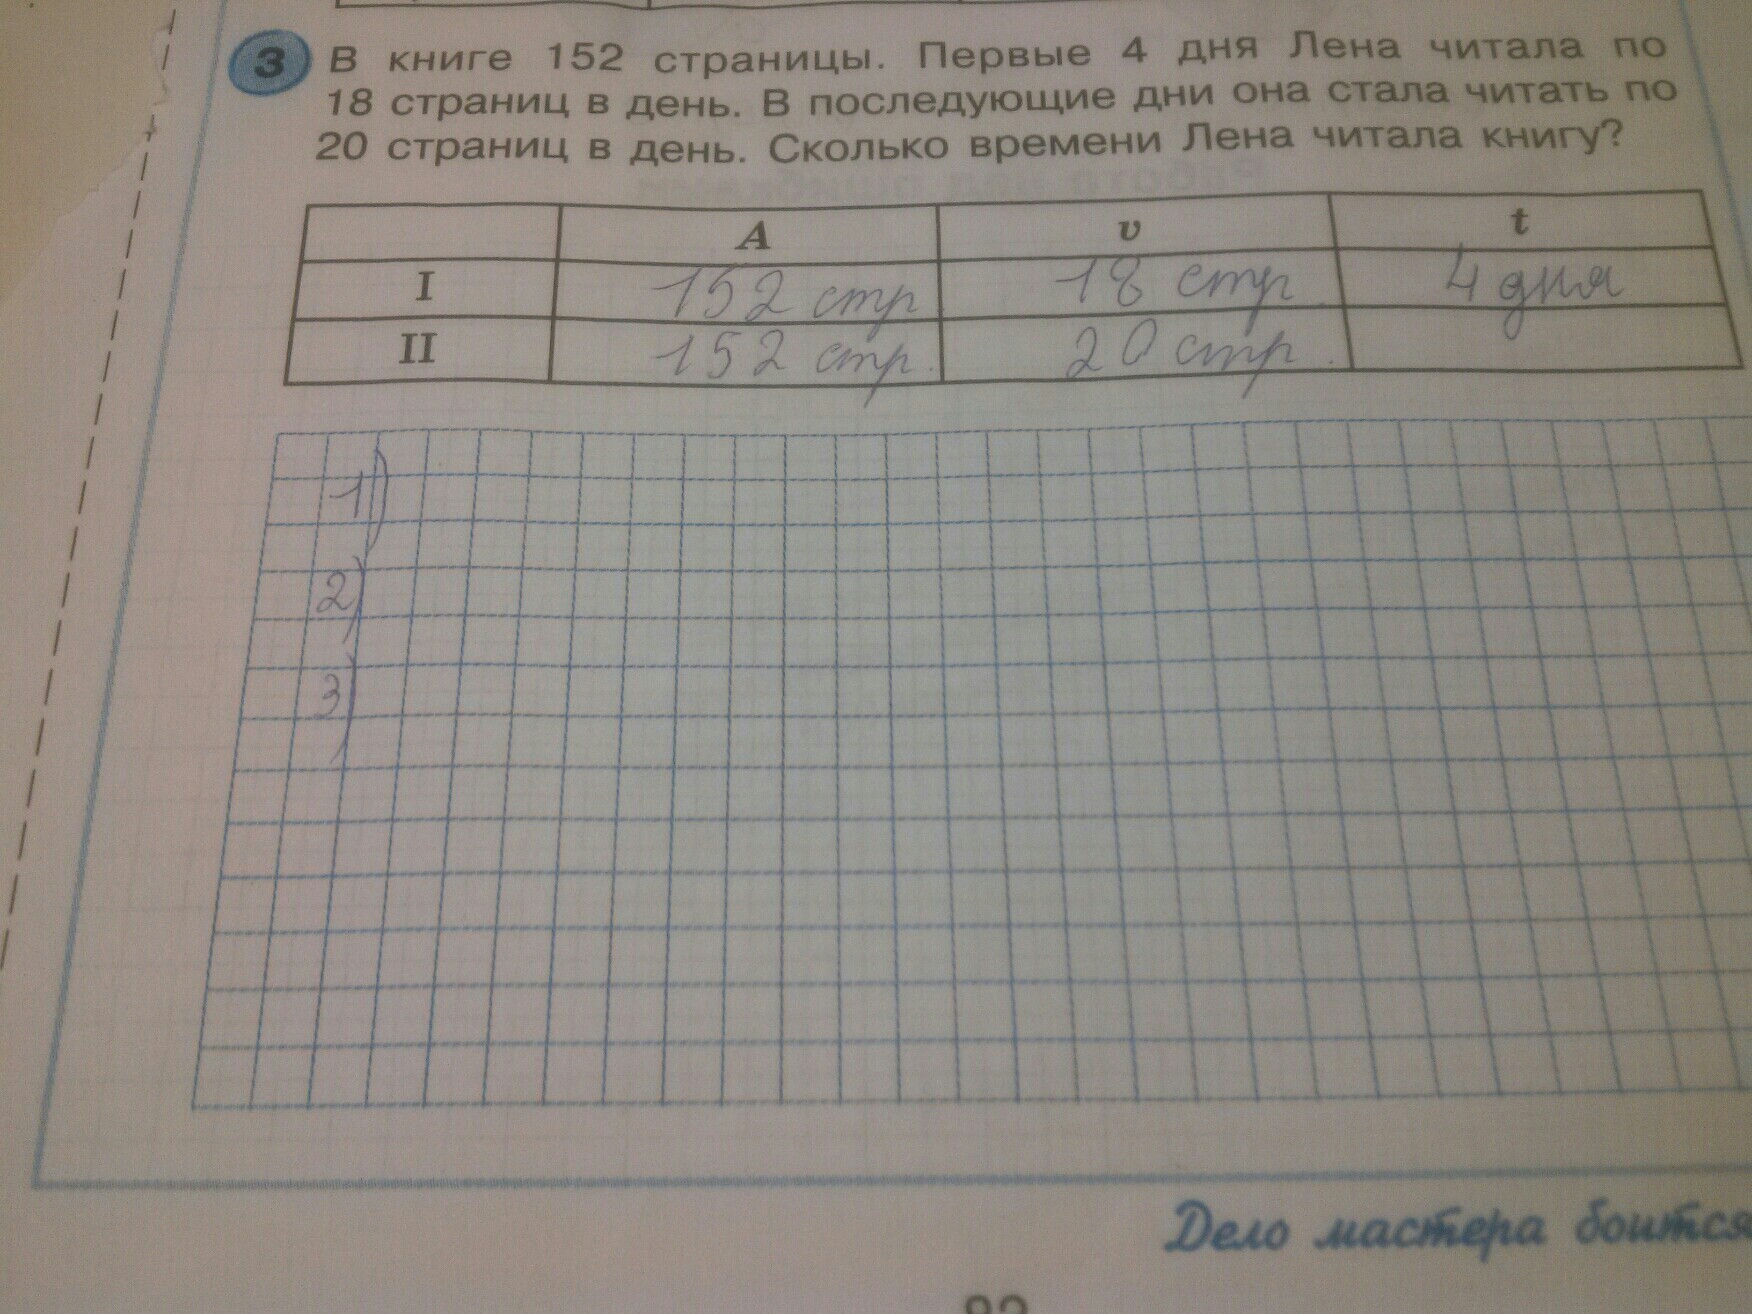 3 В книге 152 страницы. Первые 4 дня Лена читала по
18 страниц в день. В последующие дни она стала читать по
20 страниц в день. Сколько времени Лена читала книгу?
A v t
I 152 стр 18 стр 4 дня
II 152 стр. 20 стр.
1)
2)
3)
Дело мастера боится